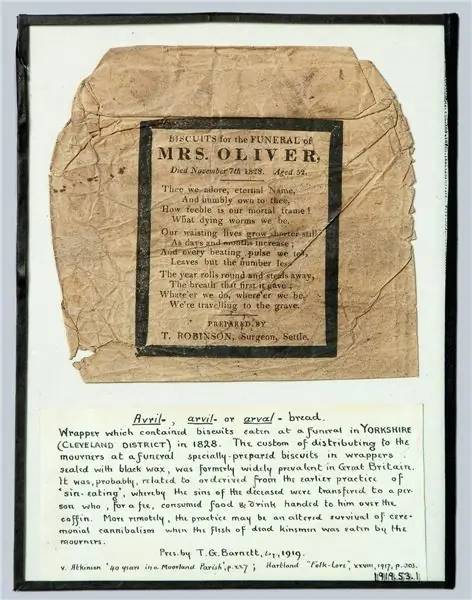 BISCUITS for the FUNERAL of
MRS. OLIVER,
Died November 7th 1828. Aged 52.
Thee we adore, eternal Name,
And humbly own to thee,
How feeble is our mortal frame!
What dying worms we be.
Our waisting lives grow shorter still,
As days and months increase;
And every beating pulse we tell,
Leaves but the number less
The year rolls round and steals away,
The breath that first it gave;
Whate'er we do, where'er we be,
We're travelling to the grave.
PREPARED BY
T. ROBINSON, Surgeon, Settle.
Avril-, arvil- or arval- bread.
Wrapper which contained biscuits eaten at a funeral in YORKSHIRE
(CLEVELAND DISTRICT) in 1828. The custom of distributing to the
mourners at a funeral specially-prepared biscuits in wrappers
sealed with black wax, was formerly widely prevalent in Great Britain.
It was, probably, related to or derived from the earlier practice of
'sin-eating', whereby the sins of the deceased were transferred to a per-
son who, for a fee, consumed food & drink handed to him over the
coffin. More remotely, the practice may be an altered survival of cere-
monial cannibalism when the flesh of dead kinsmen was eaten by the
mourners.
Pres. by T.G. Barnett, Esq., 1919.
v. Atkinson '40 years in a Moorland Parish', p. 227; Hartland 'Folk-Lore', xxviii, 1917, p. 305.
1919.53.1